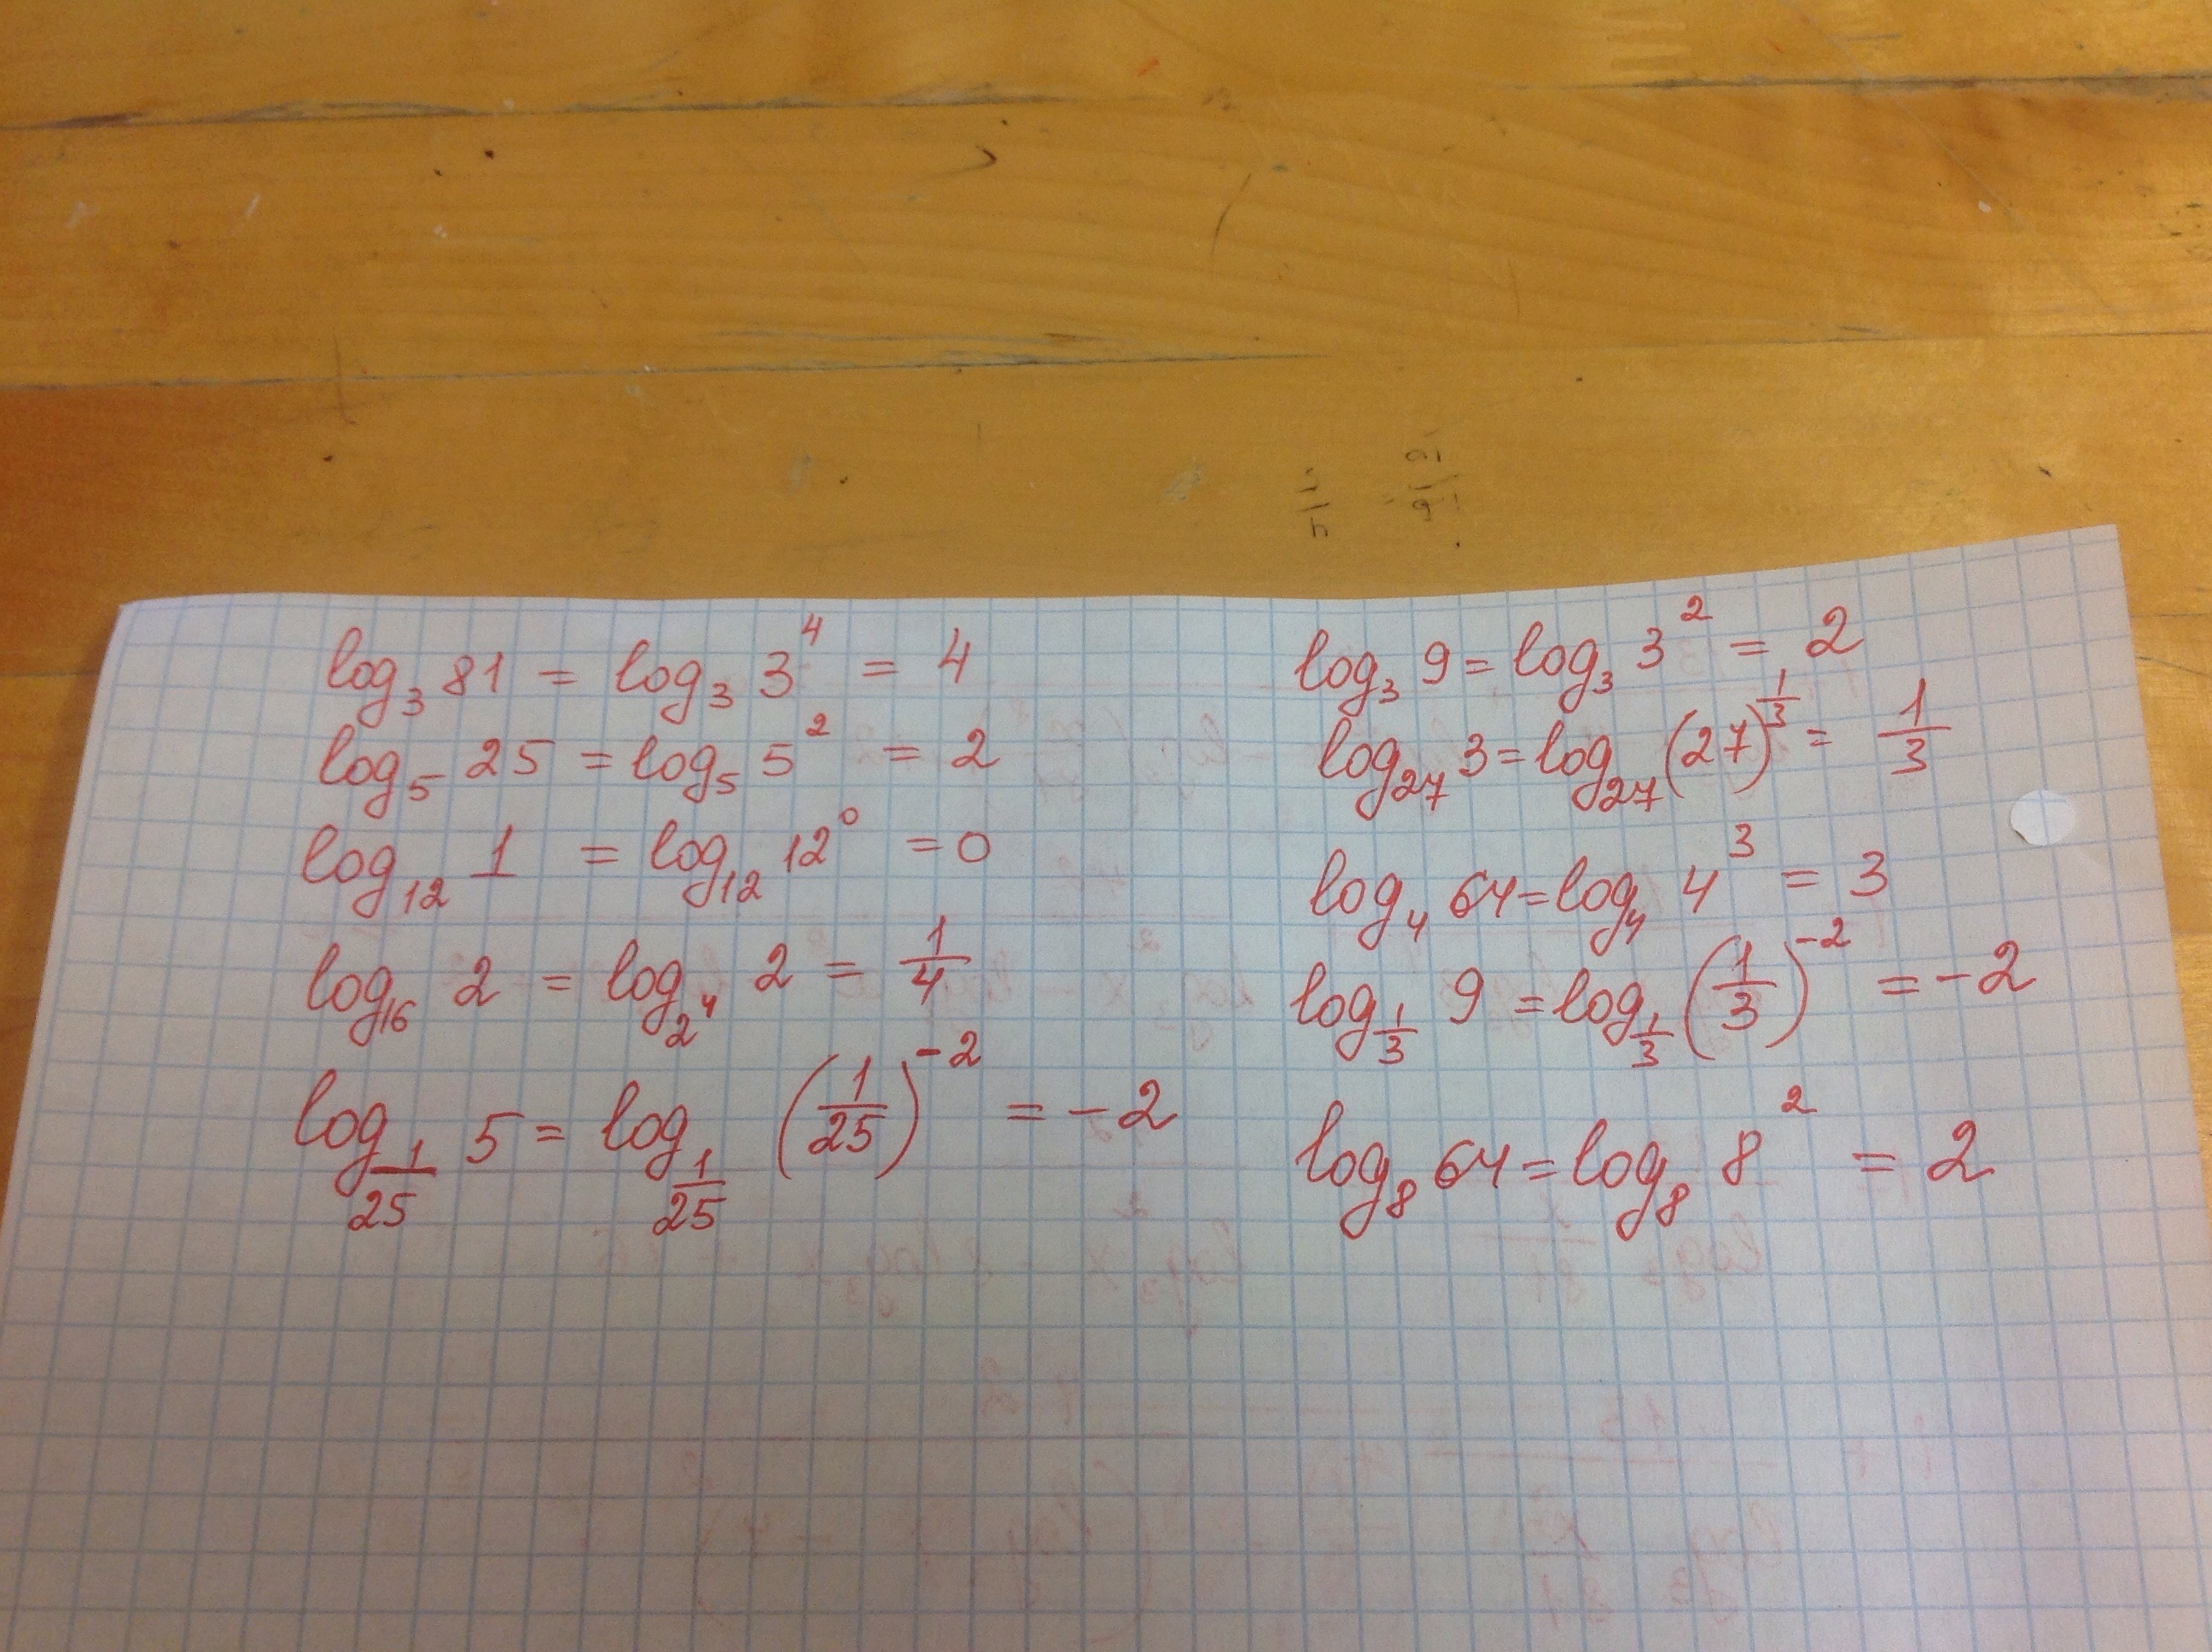 log₃ 81 = log₃ 3⁴ = 4
log₅ 25 = log₅ 5² = 2
log₁₂ 1 = log₁₂ 12⁰ = 0
log₁₆ 2 = log_{2⁴} 2 = 1/4
log_{1/25} 5 = log_{1/25} (1/25)⁻² = -2
log₃ 9 = log₃ 3² = 2
log₂₇ 3 = log₂₇ (27)^{1/3} = 1/3
log₄ 64 = log₄ 4³ = 3
log_{1/3} 9 = log_{1/3} (1/3)⁻² = -2
log₈ 64 = log₈ 8² = 2